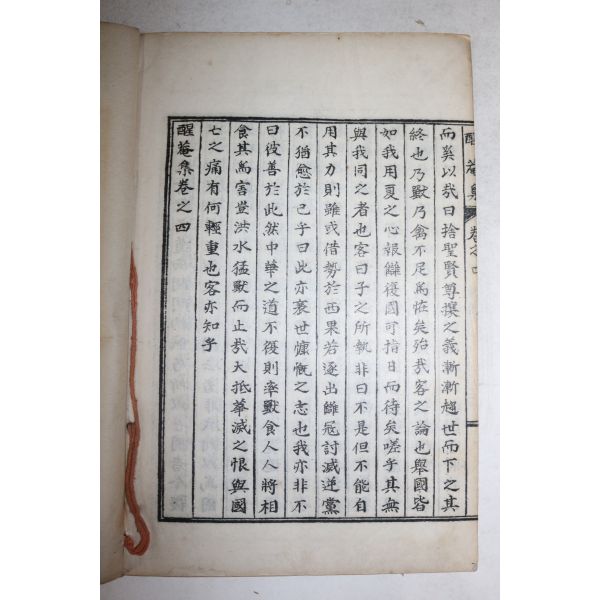 醒菴集 卷之四
而奚以㢤曰捨聖賢尊攘之義漸漸趨世而下之其
終也乃獸乃禽不足爲恠矣殆㢤客之論也舉國皆
如我用夏之心報讎復國可指日而待矣嗟乎其無
與我同之者也客曰子之所執非曰不是但不能自
用其力則雖或借勢於西果若逐出讎冦討滅逆黨
不猶愈於已乎曰此亦衰世慷慨之志也我亦非不
曰彼善於此然中華之道不復則率獸食人人將相
食其爲害豈洪水猛獸而止㢤大抵華滅之恨與國
亡之痛有何輕重也客亦知乎
醒菴集卷之四